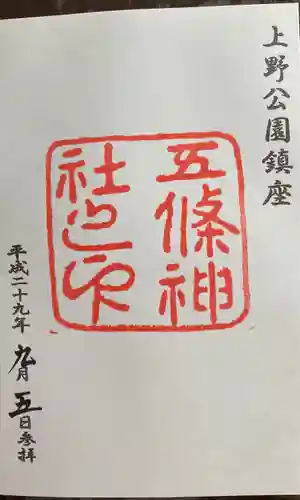 上野公園鎮座
五條神
社之印
平成二十九年 九月 五日参拝